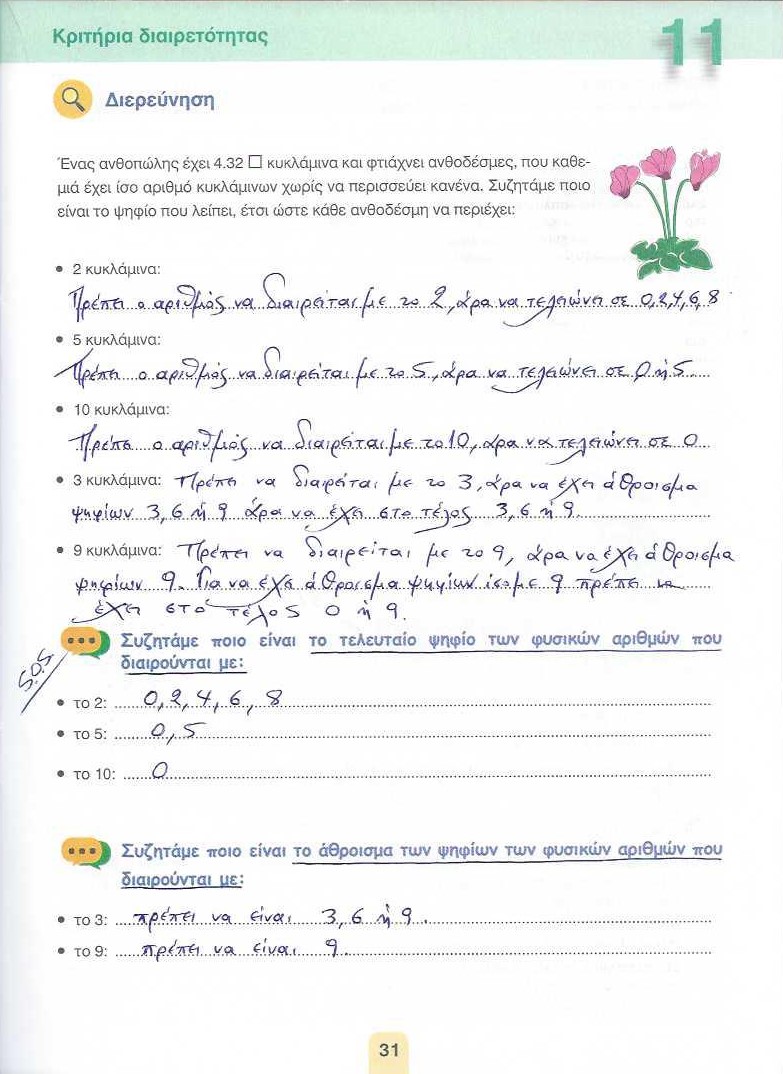 Κριτήρια διαιρετότητας
11
Διερεύνηση
Ένας ανθοπώλης έχει 4.32 □ κυκλάμινα και φτιάχνει ανθοδέσμες, που καθε-
μιά έχει ίσο αριθμό κυκλάμινων χωρίς να περισσεύει κανένα. Συζητάμε ποιο
είναι το ψηφίο που λείπει, έτσι ώστε κάθε ανθοδέσμη να περιέχει:
• 2 κυκλάμινα:
Πρέπει ο αριθμός να διαιρείται με το 2, άρα να τελειώνει σε 0,2,4,6,8
• 5 κυκλάμινα:
Πρέπει ο αριθμός να διαιρείται με το 5, άρα να τελειώνει σε 0 ή 5
• 10 κυκλάμινα:
Πρέπει ο αριθμός να διαιρείται με το 10, άρα να τελειώνει σε 0
• 3 κυκλάμινα: Πρέπει να διαιρείται με το 3, άρα να έχει άθροισμα
ψηφίων 3, 6 ή 9 άρα να έχει στο τέλος 3, 6 ή 9.
• 9 κυκλάμινα: Πρέπει να διαιρείται με το 9, άρα να έχει άθροισμα
ψηφίων 9. Για να έχει άθροισμα ψηφίων ίσο με 9 πρέπει να
έχει στο τέλος 0 ή 9.
S.O.S.
Συζητάμε ποιο είναι το τελευταίο ψηφίο των φυσικών αριθμών που
διαιρούνται με:
• το 2: 0, 2, 4, 6, 8
• το 5: 0, 5
• το 10: 0
Συζητάμε ποιο είναι το άθροισμα των ψηφίων των φυσικών αριθμών που
διαιρούνται με:
• το 3: πρέπει να είναι 3, 6 ή 9.
• το 9: πρέπει να είναι 9.
31